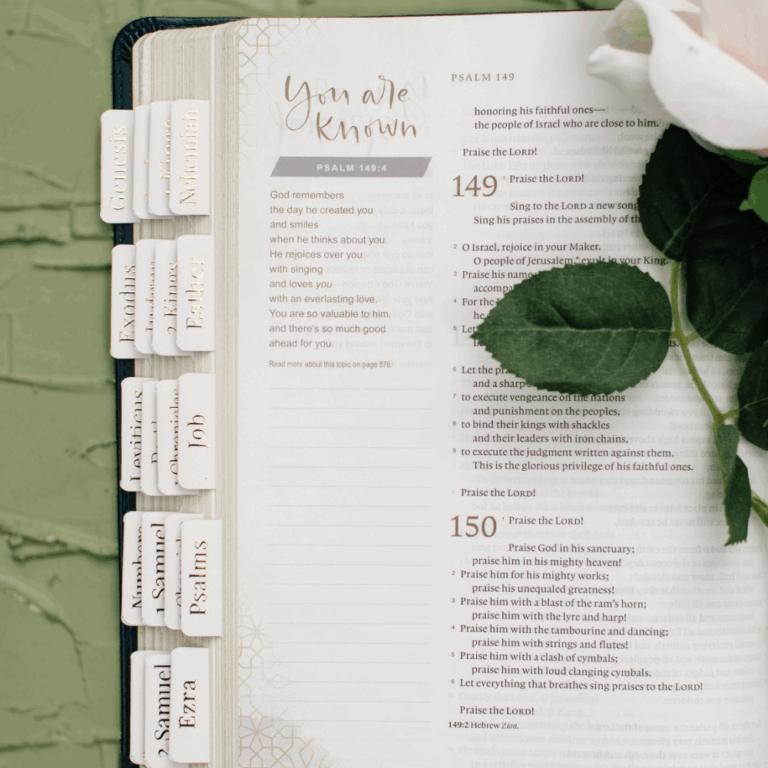 Genesis
Nehemiah
Exodus
2 Kings
Esther
Leviticus
Chronicles
Job
Numbers
1 Samuel
Psalms
2 Samuel
Ezra
You are
known
PSALM 149:4
God remembers
the day he created you
and smiles
when he thinks about you.
He rejoices over you
with singing
and loves you
with an everlasting love.
You are so valuable to him,
and there's so much good
ahead for you.
Read more about this topic on page 876.
PSALM 149
honoring his faithful ones—
the people of Israel who are close to him.
Praise the LORD!
149 1 Praise the LORD!
Sing to the LORD a new song
Sing his praises in the assembly of th
2 O Israel, rejoice in your Maker.
O people of Jerusalem, exult in your King.
3 Praise his name
accompa
4 For the
he
5 Let
us.
6 Let the pr
and a sharp
7 to execute vengeance on the nations
and punishment on the peoples,
8 to bind their kings with shackles
and their leaders with iron chains,
9 to execute the judgment written against them.
This is the glorious privilege of his faithful ones.
Praise the LORD!
150 1 Praise the LORD!
Praise God in his sanctuary;
praise him in his mighty heaven!
2 Praise him for his mighty works;
praise his unequaled greatness!
3 Praise him with a blast of the ram's horn;
praise him with the lyre and harp!
4 Praise him with the tambourine and dancing;
praise him with strings and flutes!
5 Praise him with a clash of cymbals;
praise him with loud clanging cymbals.
6 Let everything that breathes sing praises to the LORD!
Praise the LORD!
149:2 Hebrew Zion.